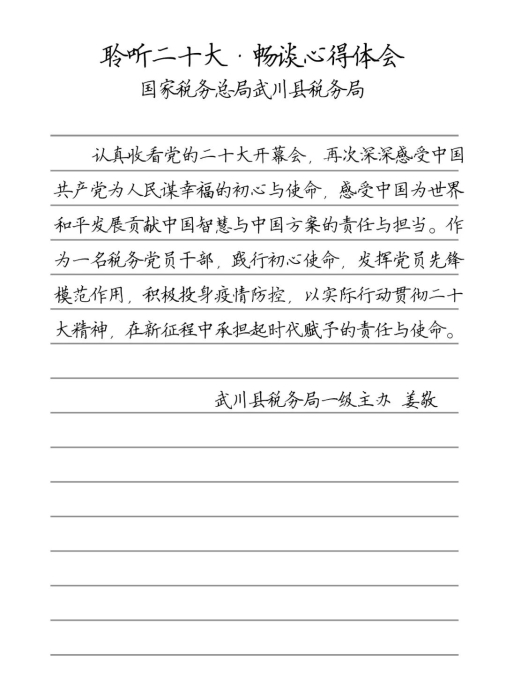 聆听二十大·畅谈心得体会
国家税务总局武川县税务局
认真收看党的二十大开幕会，再次深深感受中国
共产党为人民谋幸福的初心与使命，感受中国为世界
和平发展贡献中国智慧与中国方案的责任与担当。作
为一名税务党员干部，践行初心使命，发挥党员先锋
模范作用，积极投身疫情防控，以实际行动贯彻二十
大精神，在新征程中承担起时代赋予的责任与使命。
武川县税务局一级主办 姜敬